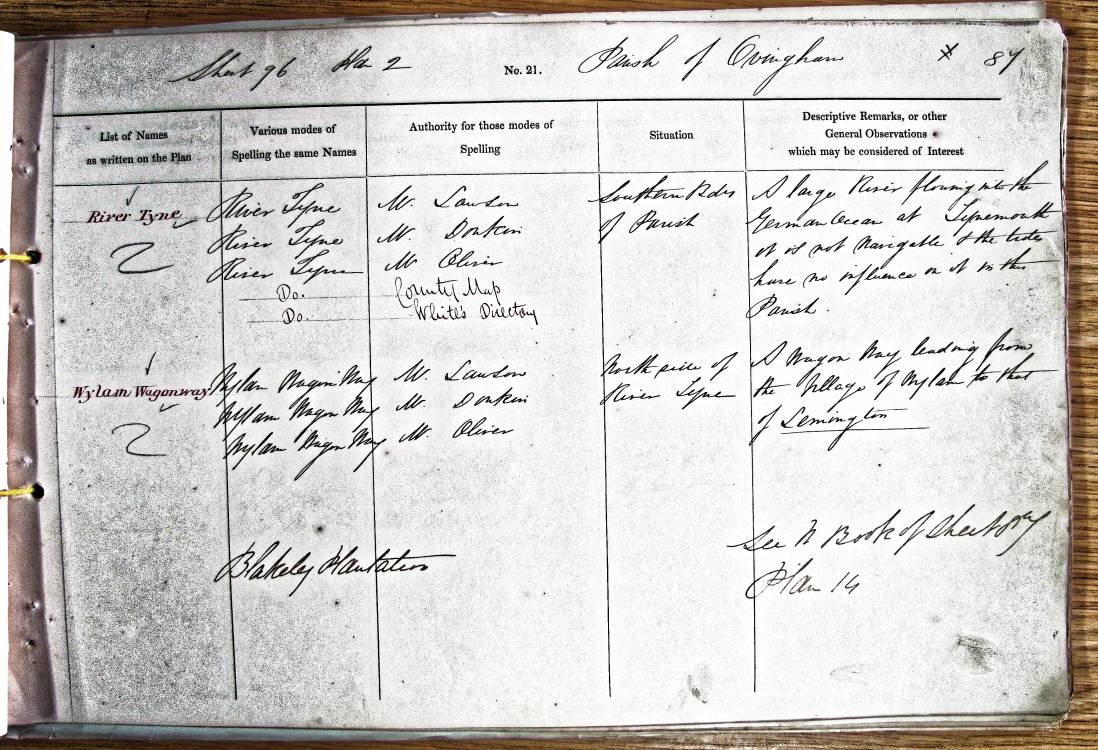 Sheet 96 Plan 2 No. 21. Parish of Ovingham 87
List of Names
as written on the Plan
Various modes of
Spelling the same Names
Authority for those modes of
Spelling
Situation
Descriptive Remarks, or other
General Observations
which may be considered of Interest
River Tyne
River Tyne
River Tyne
River Tyne
Do.
Do.
Mr. Lawson
Mr. Donkin
Mr. Oliver
County Map
White's Directory
Southern Bdry
of Parish
A large River flowing into the
German Ocean at Tynemouth
it is not Navigable & the tides
have no influence on it in this
Parish.
Wylam Wagonway
Wylam Wagon Way
Wylam Wagon Way
Wylam Wagon Way
Mr. Lawson
Mr. Donkin
Mr. Oliver
North side of
River Tyne
A Wagon Way leading from
the Village of Wylam to that
of Lemington
Blakeley Plantation
See N Book of Sheet
Plan 14